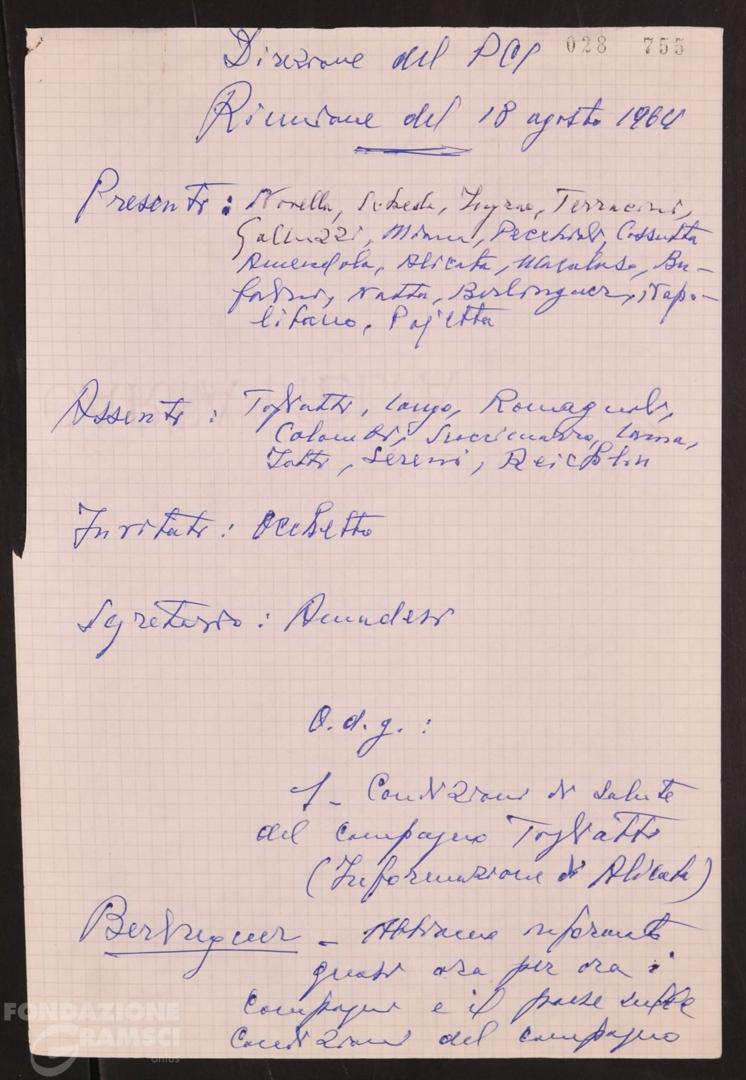 Direzione del PCI
028 755
Riunione del 18 agosto 1964
Presenti: Novella, Scheda, Ingrao, Terracini,
Galluzzi, Miana, Pecchioli, Cossutta
Amendola, Alicata, Macaluso, Bu-
falini, Natta, Berlinguer, Napo-
litano, Pajetta
Assenti: Togliatti, Longo, Romagnoli,
Colombi, Scoccimarro, Lama,
Jotti, Sereni, Reichlin
Invitati: Occhetto
Segretario: Amadesi
O.d.g.:
1 - Condizioni di salute
del compagno Togliatti
(Informazione di Alicata)
Berlinguer - Abbiamo informato
quasi ora per ora i
compagni e il paese sulle
condizioni del compagno
FONDAZIONE
GRAMSCI
onlus